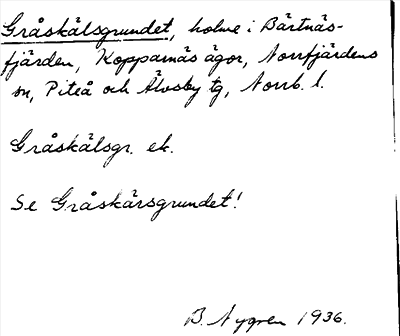 Gråskälsgrundet, holme i Bärtnäs-
fjärden, Kopparnäs ägor, Norrfjärdens
sn, Piteå och Älvsby tg, Norrb. l.
Gråskälsgr. ek.
Se Gråskärsgrundet!
B. Nygren 1936.